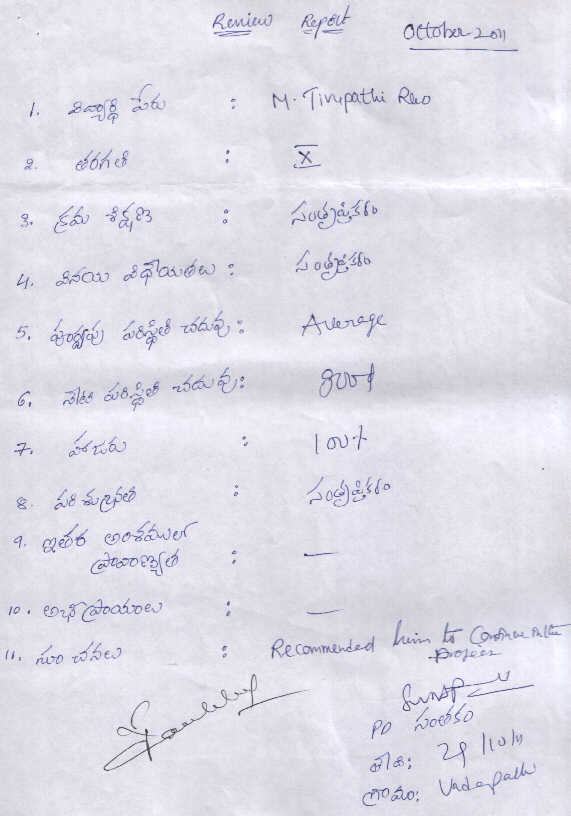 Review Report October-2011
1. విద్యార్థి పేరు : M. Tirupathi Rao
2. తరగతి : X
3. క్రమ శిక్షణ : సంతృప్తికరం
4. వినయ విధేయతలు : సంతృప్తికరం
5. పూర్వపు పరిస్థితి చదువు : Average
6. నేటి పరిస్థితి చదువు :
7. హాజరు : 100%
8. పరిశుభ్రత : సంతృప్తికరం
9. ఇతర అంశములలో
ప్రావీణ్యత : —
10. అభిప్రాయాలు : —
11. సూచనలు : Recommended him to Continue in the
Project
PD సంతకం
తేది: 29/10/11
గ్రామం: